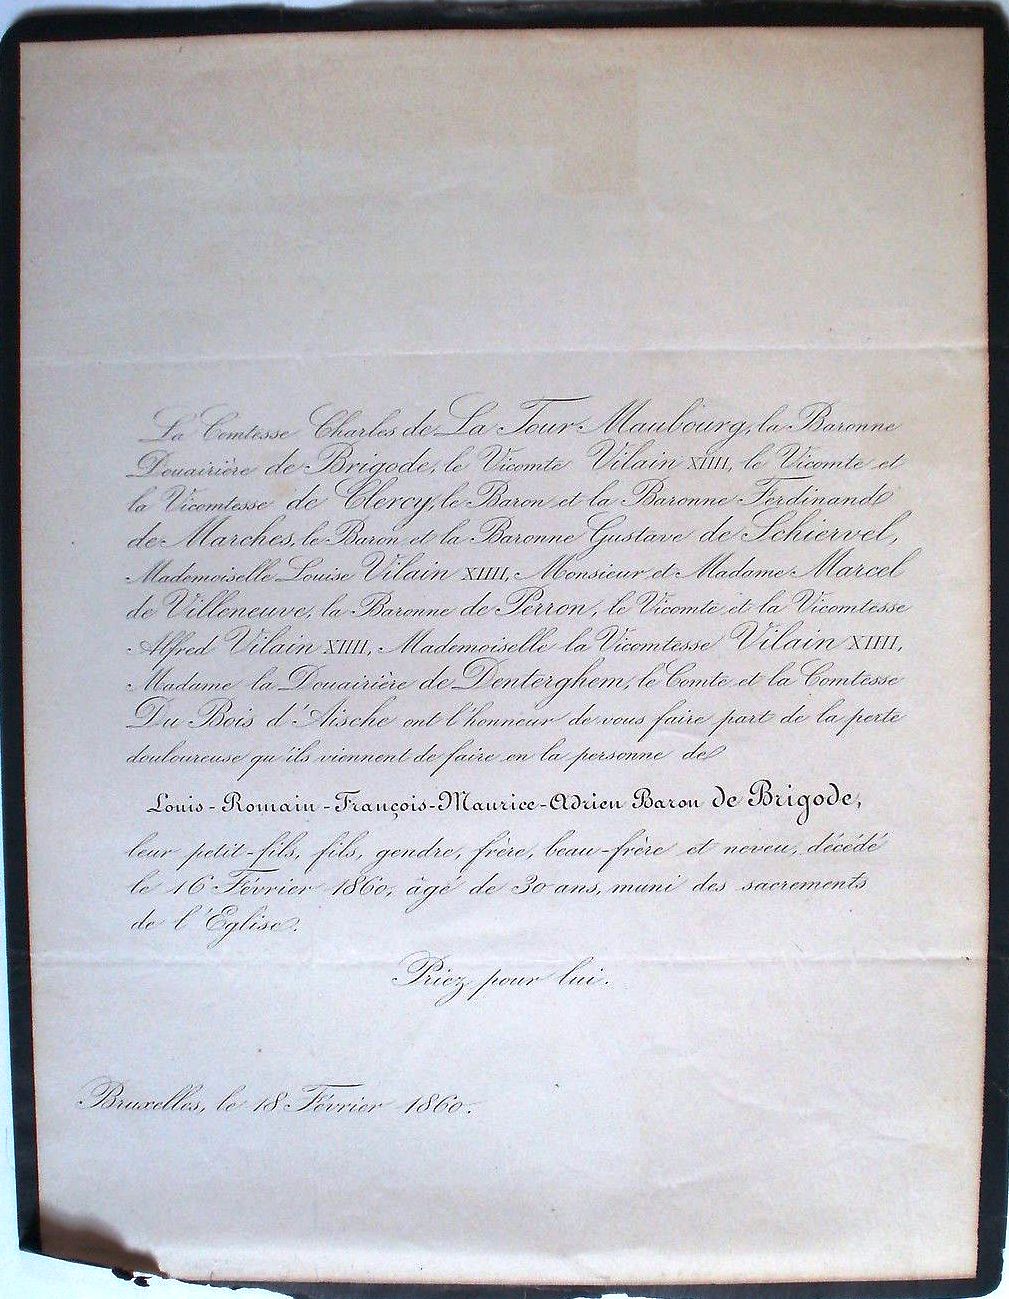 La Comtesse Charles de La Tour Maubourg, la Baronne
Douairière de Brigode, le Vicomte Vilain XIIII, le Vicomte et
la Vicomtesse de Clercy, le Baron et la Baronne Ferdinand
de Marches, le Baron et la Baronne Gustave de Schiervel,
Mademoiselle Louise Vilain XIIII, Monsieur et Madame Marcel
de Villeneuve, la Baronne de Perron, le Vicomte et la Vicomtesse
Alfred Vilain XIIII, Mademoiselle la Vicomtesse Vilain XIIII,
Madame la Douairière de Denterghem, le Comte et la Comtesse
Du Bois d'Aische ont l'honneur de vous faire part de la perte
douloureuse qu'ils viennent de faire en la personne de
Louis-Romain-François-Maurice-Adrien Baron de Brigode,
leur petit-fils, fils, gendre, frère, beau-frère et neveu, décédé
le 16 Février 1860, âgé de 30 ans, muni des sacrements
de l'Eglise.
Priez pour lui.
Bruxelles, le 18 Février 1860.